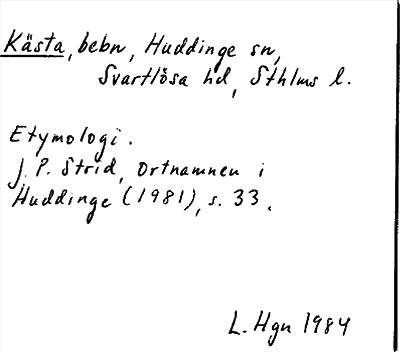 Kästa, bebn, Huddinge sn,
Svartlösa hd, Sthlms l.
Etymologi.
J. P. Strid, Ortnamnen i
Huddinge (1981), s. 33.
L. Hgn 1984